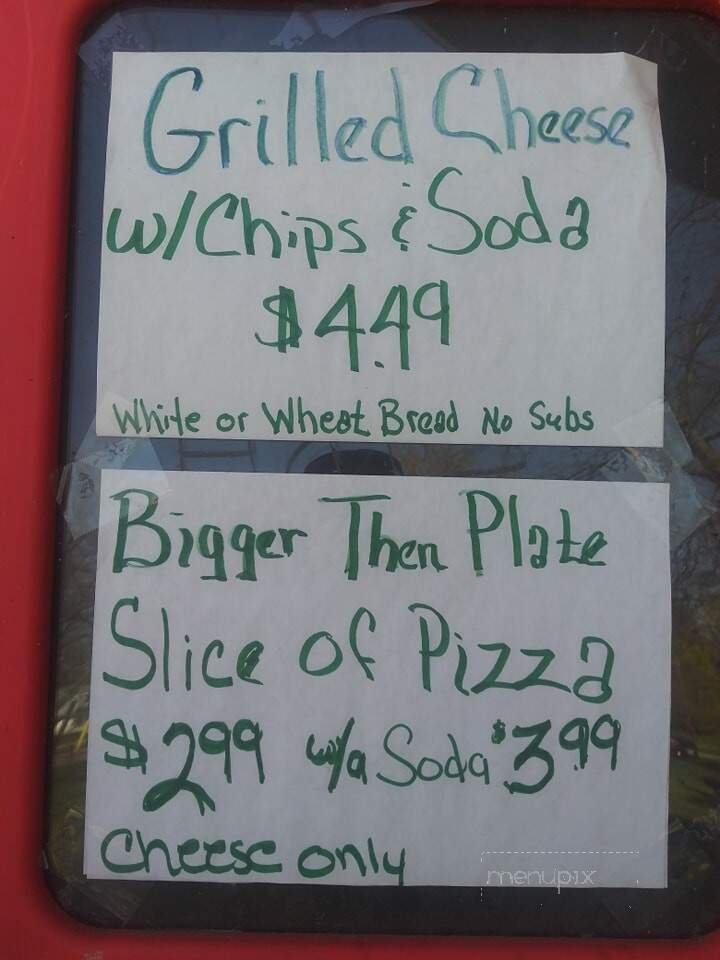 Grilled Cheese
w/Chips & Soda
$4.49
White or Wheat Bread No Subs
Bigger Then Plate
Slice of Pizza
$2.99 w/a Soda $3.99
Cheese only
menupix